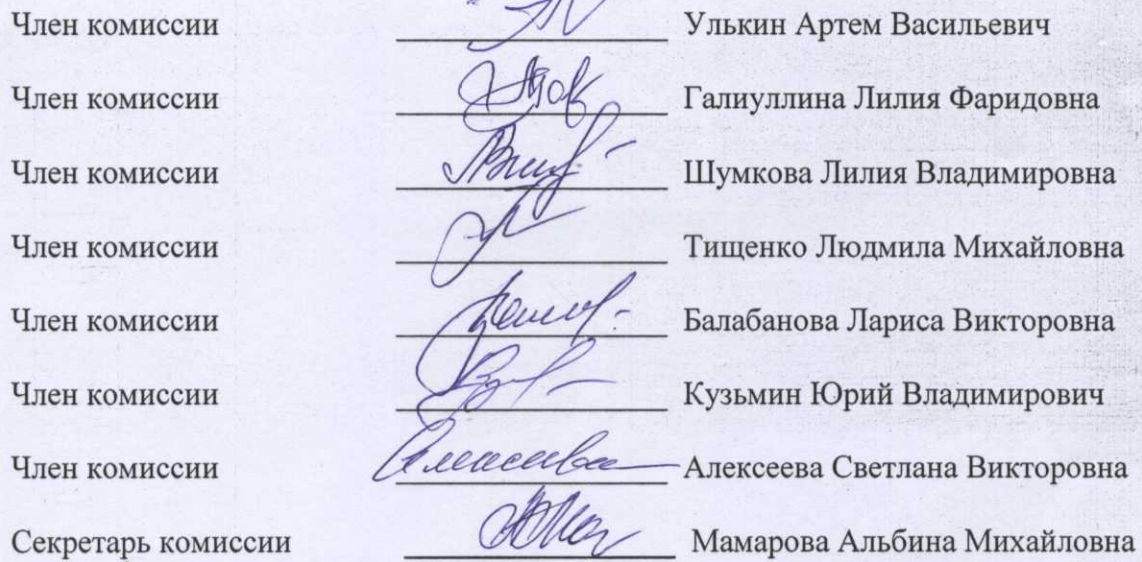 Член комиссии Улькин Артем Васильевич
Член комиссии Галиуллина Лилия Фаридовна
Член комиссии Шумкова Лилия Владимировна
Член комиссии Тищенко Людмила Михайловна
Член комиссии Балабанова Лариса Викторовна
Член комиссии Кузьмин Юрий Владимирович
Член комиссии Алексеева Светлана Викторовна
Секретарь комиссии Мамарова Альбина Михайловна